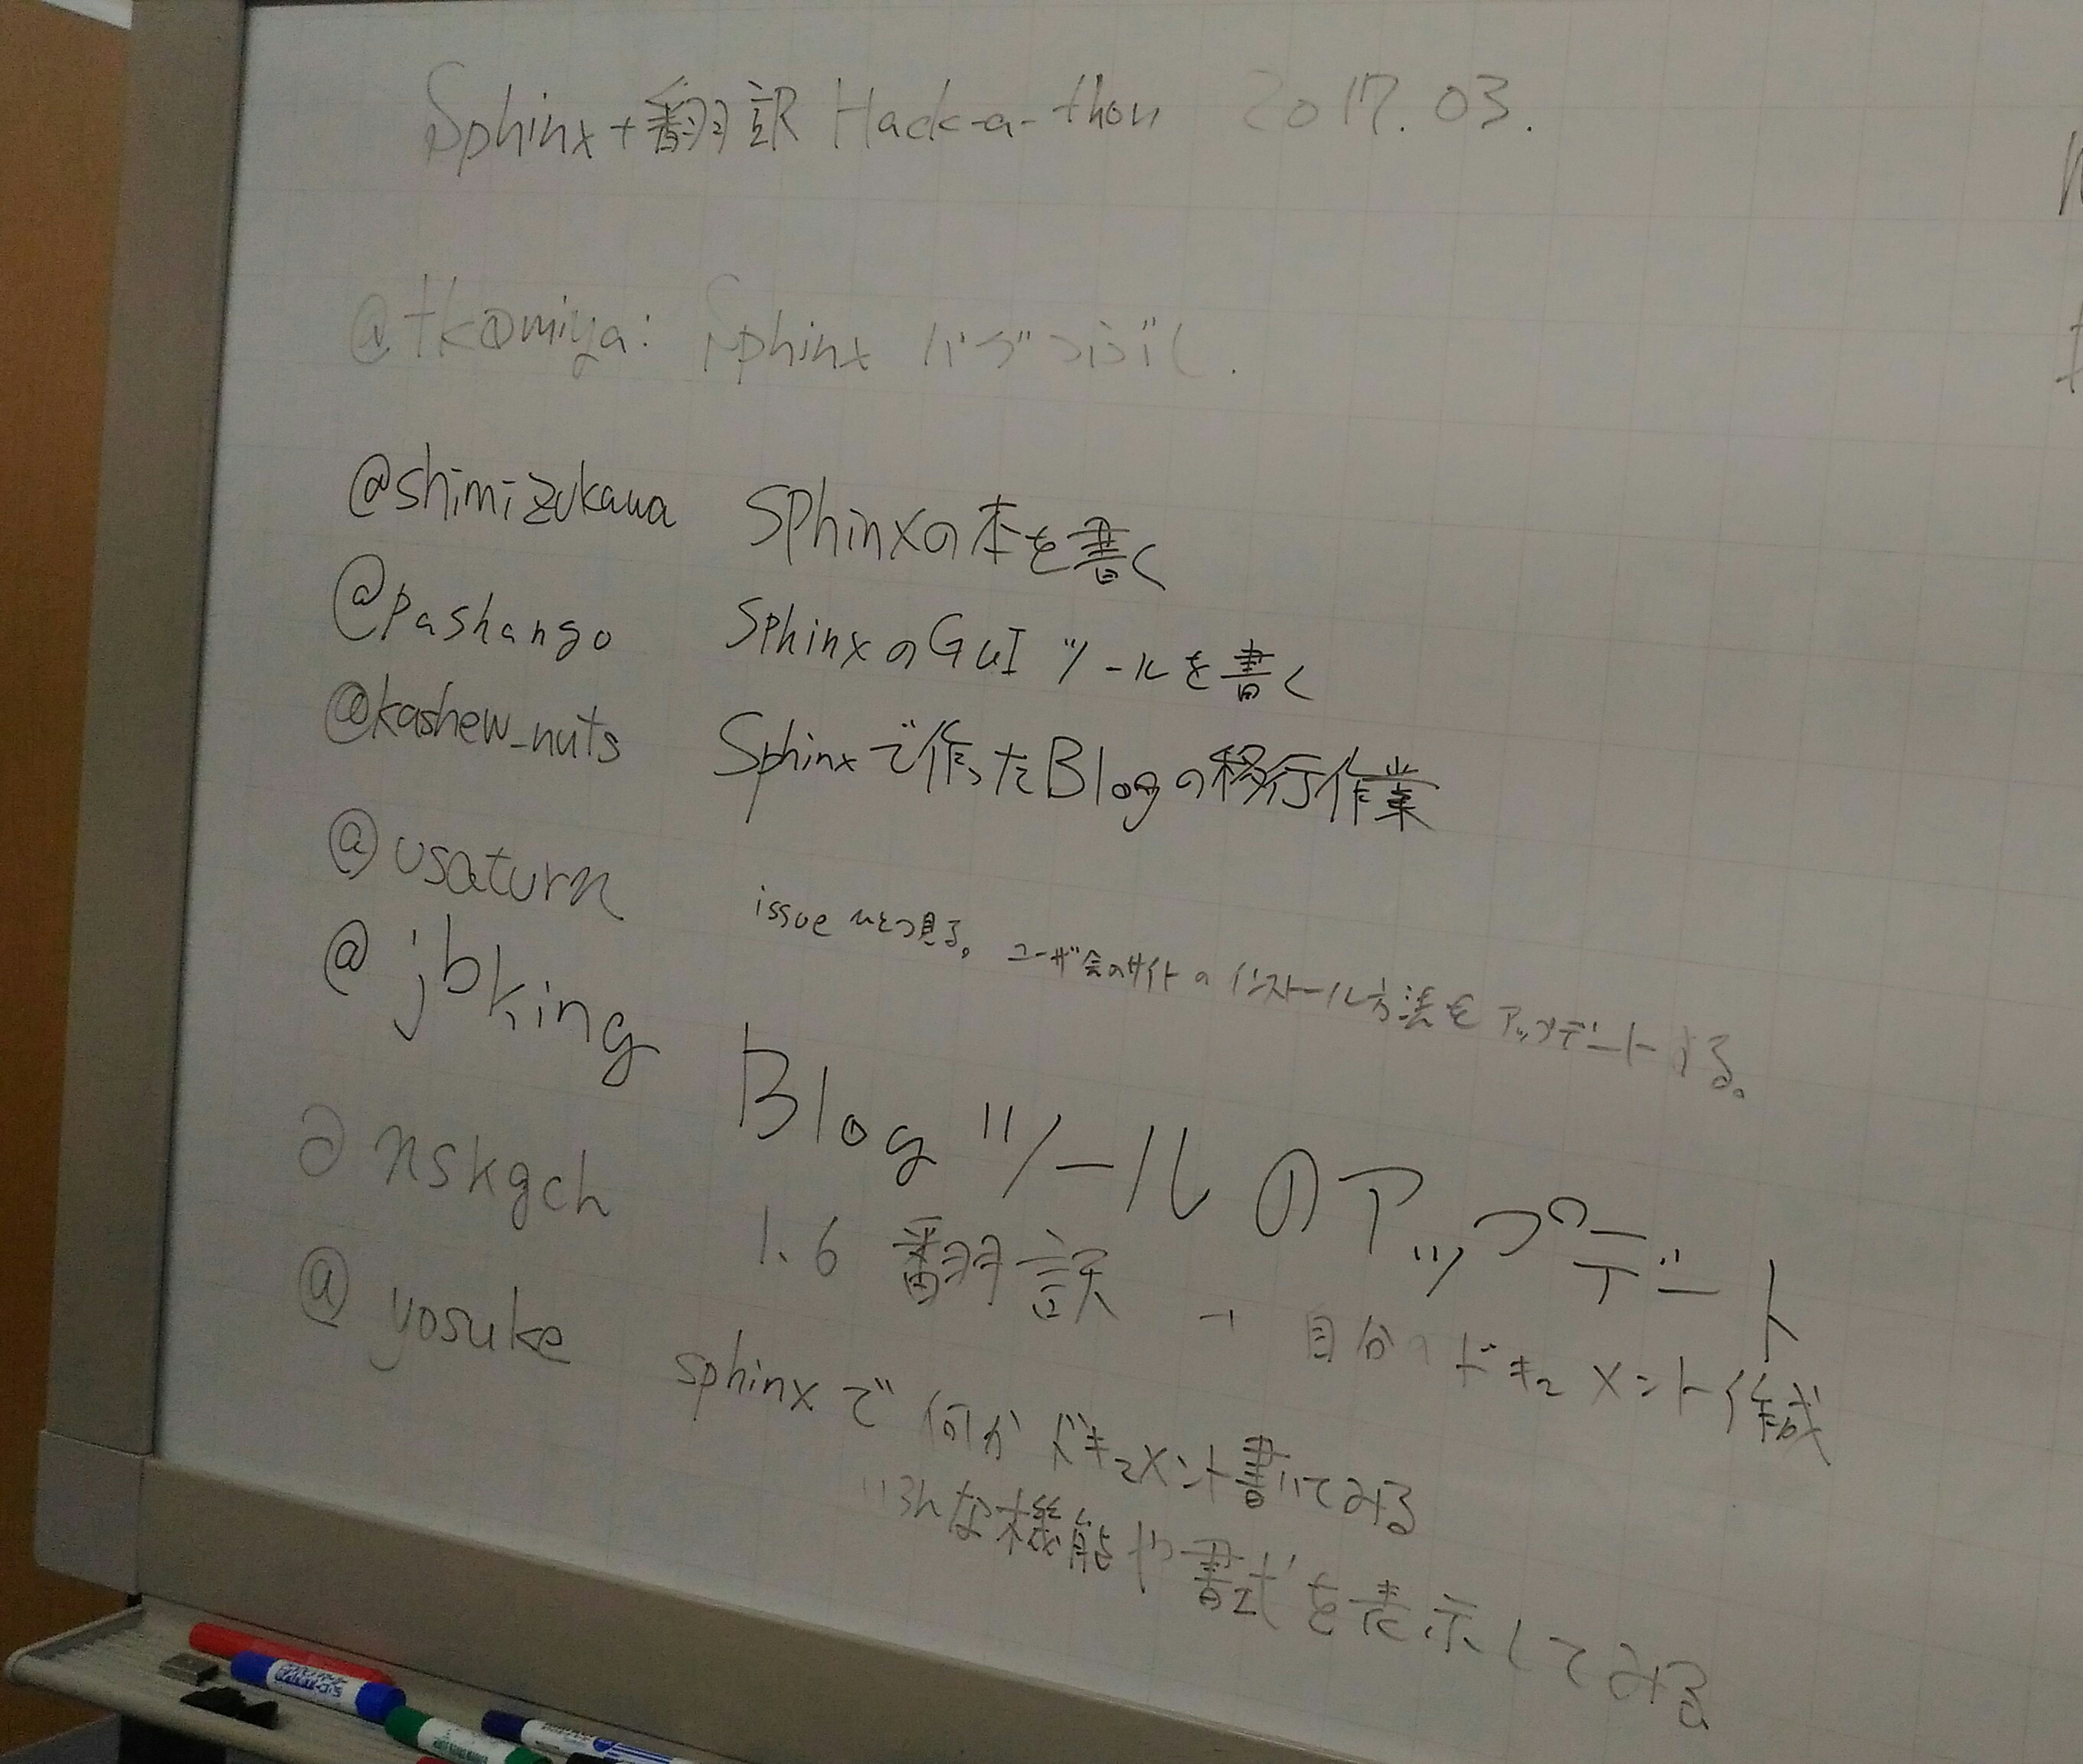 Sphinx+翻訳 Hack-a-thon 2017.03.
@tkomiya: Sphinx バグつぶし.
@shimizukawa Sphinxの本を書く
@pashango SphinxのGUIツールを書く
@kashew_nuts Sphinxで作ったBlogの移行作業
@usaturn issueひとつ見る。ユーザ会のサイトのインストール方法をアップデートする。
@jbking Blogツールのアップデート
@nskgch 1.6 翻訳 → 自分のドキュメント作成
@yosuke sphinxで何かドキュメント書いてみる
いろんな機能や書式を表示してみる